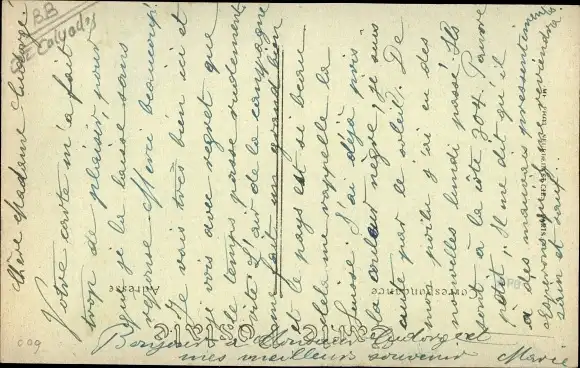 Chère Madame Ludorget
Votre carte m'a fait
trop de plaisir, pour
que je la laisse sans
réponse. Merci beaucoup!
Je vais très bien ici et
je vois avec regret que
le temps passe rudement
vite. L'air de la campagne
me fait un grand bien
et le pays est si beau
cela me rappelle la
Suisse. J'ai déjà pris
la couleur nègre, je suis
cuite par le soleil. De
mon poilu j'ai eu des
nouvelles lundi passé. Ils
sont à la côte 304. Pauvre
petit; il me dit qu'il
a des mauvais pressentiments
Espérons qu'il me reviendra
sain et sauf.
Bonjour à Monsieur Ludorget
mes meilleurs souvenir Marie
BB
Calvados
Correspondance
Adresse
CARTE POSTALE
009